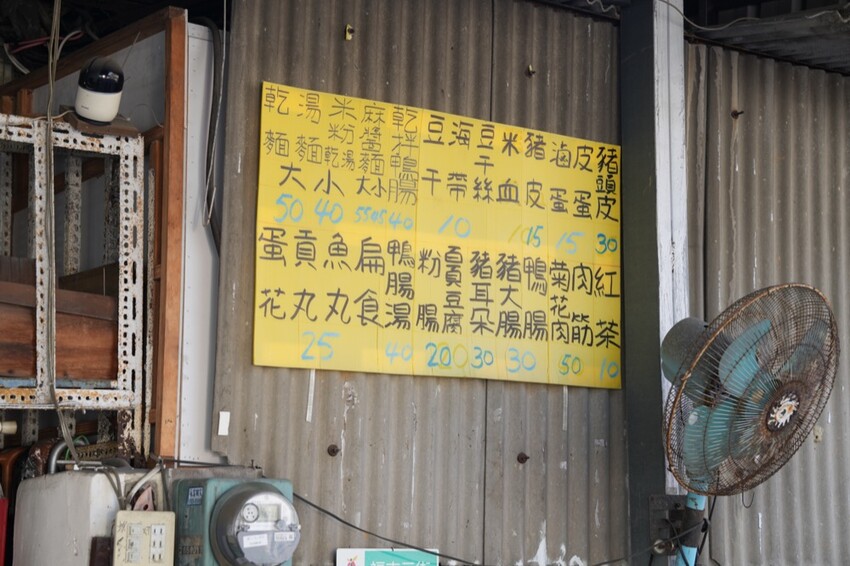 乾麵
湯麵
大 50
小 40
米粉乾湯
麻醬麵
大小 55 45
乾拌鴨腸 40
豆干
海帶
10
豆干絲
米血
豬皮 15
滷蛋 15
皮蛋
豬頭皮 30
蛋花
貢丸
魚丸
扁食
25
鴨腸湯 40
粉腸
百頁豆腐
20
豬耳朵 30
豬大腸 30
鴨腸
菊花肉 50
肉筋
紅茶 10